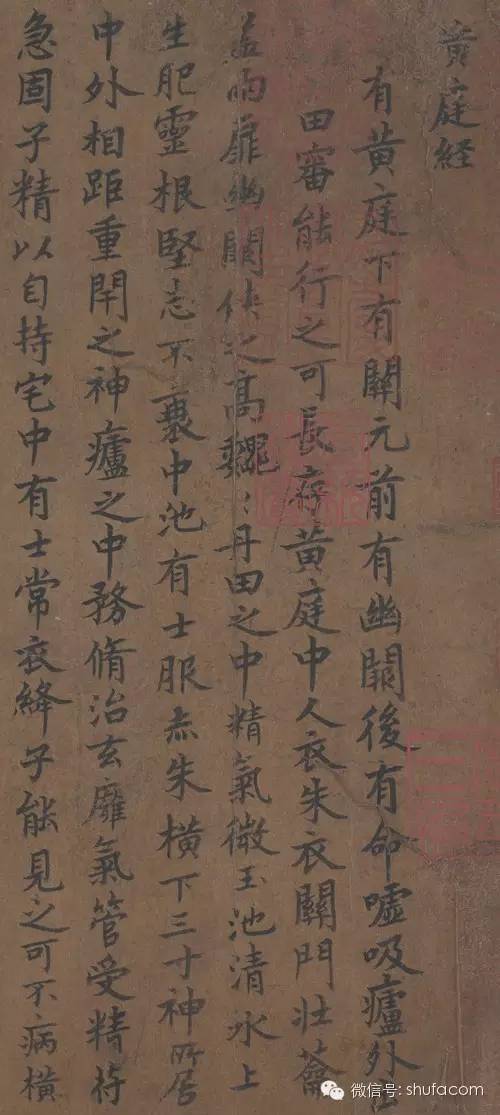 黃庭経
有黃庭下有關元前有幽闕後有命嘘吸廬外
田審能行之可長存黃庭中人衣朱衣關門壯蘥
盖兩扉幽闕侠之高巍〻丹田之中精氣微玉池清水上
生肥靈根堅志不衰中池有士服赤朱横下三寸神所居
中外相距重閇之神廬之中務脩治玄廱氣管受精符
急固子精以自持宅中有士常衣絳子能見之可不病横
微信号: shufacom